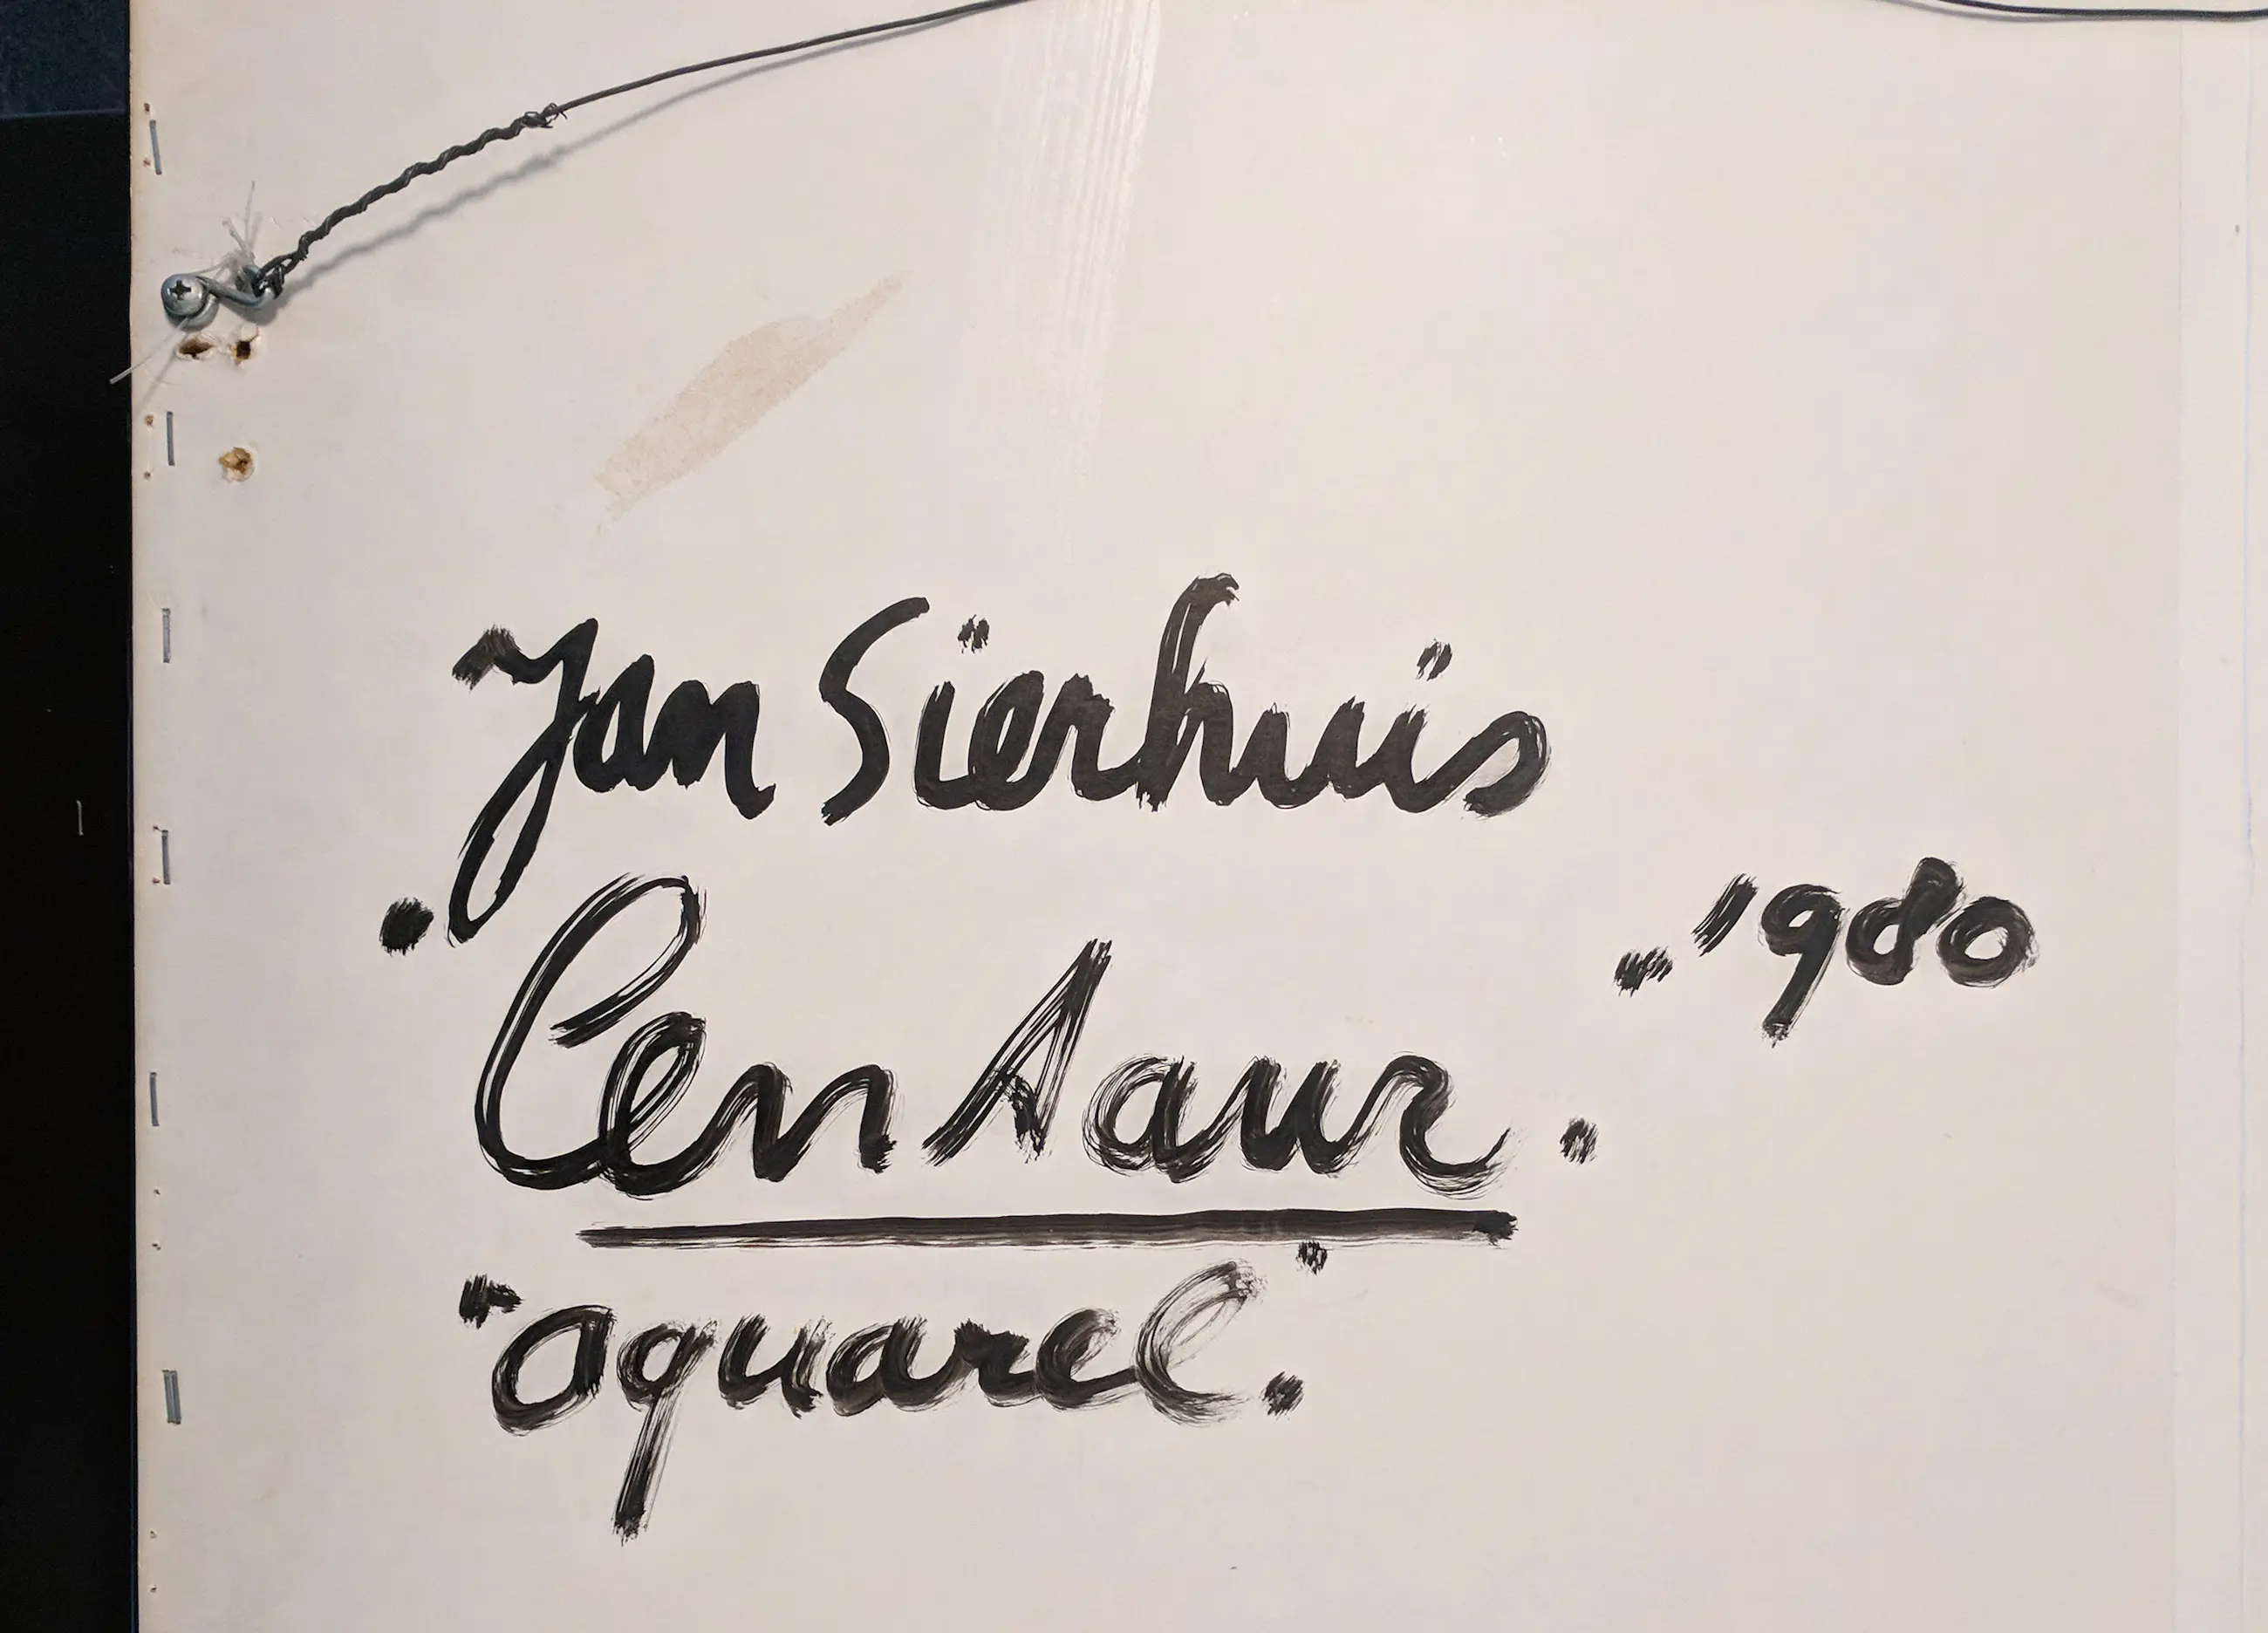 Jan Sierhuis
. Centaur. .. 1980
"aquarel."